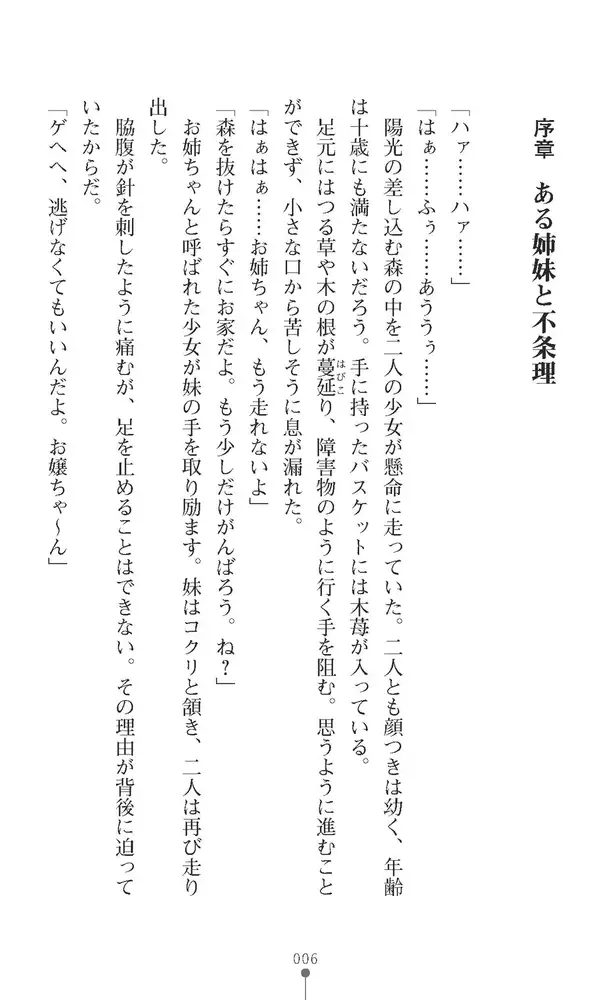 序章　ある姉妹と不条理
「ハァ……ハァ……」
「はぁ……ふぅ……あううぅ……」
陽光の差し込む森の中を二人の少女が懸命に走っていた。二人とも顔つきは幼く、年齢
は十歳にも満たないだろう。手に持ったバスケットには木苺が入っている。
足元にはつる草や木の根が蔓延り、障害物のように行く手を阻む。思うように進むこと
はびこ
ができず、小さな口から苦しそうに息が漏れた。
「はぁはぁ……お姉ちゃん、もう走れないよ」
「森を抜けたらすぐにお家だよ。もう少しだけがんばろう。ね？」
お姉ちゃんと呼ばれた少女が妹の手を取り励ます。妹はコクリと頷き、二人は再び走り
出した。
脇腹が針を刺したように痛むが、足を止めることはできない。その理由が背後に迫って
いたからだ。
「ゲヘヘ、逃げなくてもいいんだよ。お嬢ちゃ～ん」
006